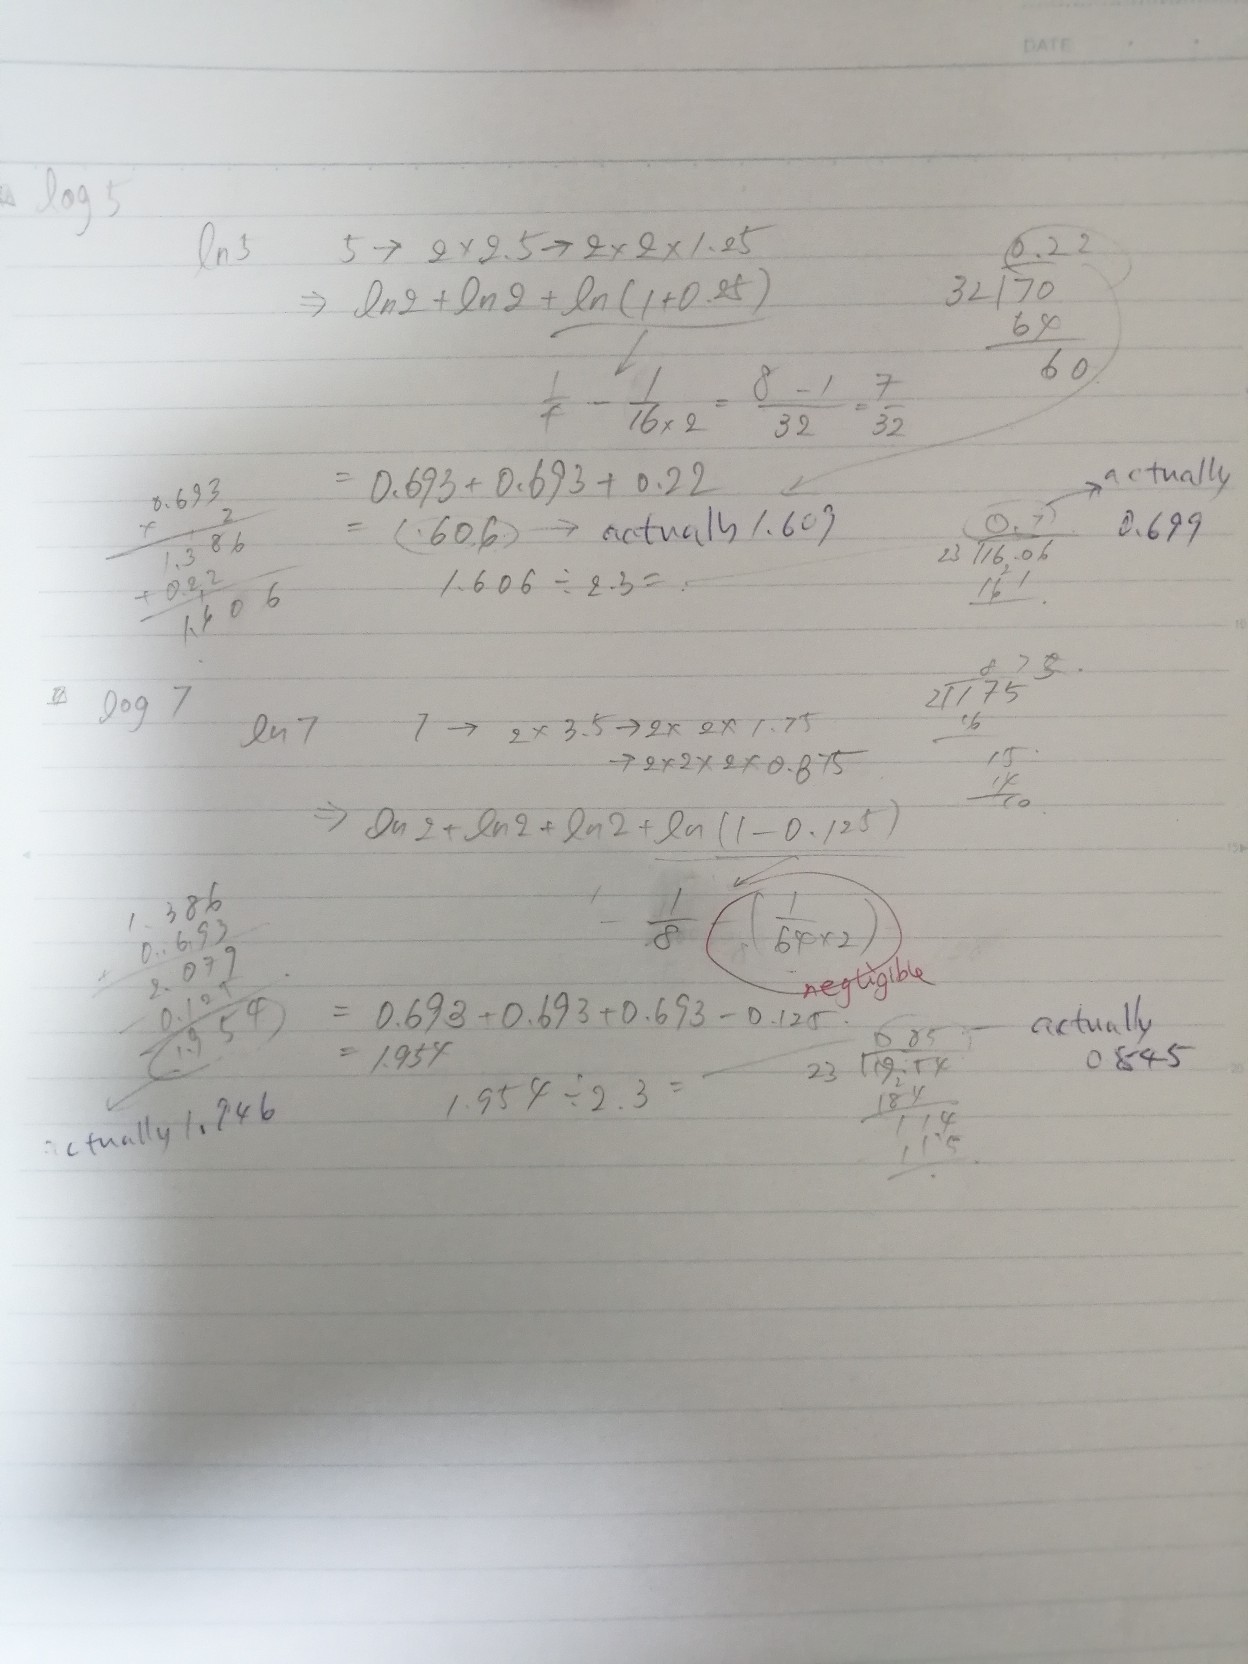 DATE
log 5
ln 5 5 → 2×2.5 → 2×2×1.25
⇒ ln2 + ln2 + ln(1+0.25)
0.22
32 170
64
60
1/4 - 1/16×2 = 8-1/32 = 7/32
= 0.693 + 0.693 + 0.22
= 1.606 → actually 1.609
1.606 ÷ 2.3 =
0.693
× 2
1.386
+ 0.22
1.606
0.7 → actually
0.699
23 16.06
161
log 7
ln 7 7 → 2×3.5 → 2×2×1.75
→ 2×2×2×0.875
875
2 175
16
15
14
10
⇒ ln2 + ln2 + ln2 + ln(1-0.125)
- 1/8 - (1/64×2)
negligible
1.386
0.693
2.079
0.125
1.954
actually 1.946
= 0.693 + 0.693 + 0.693 - 0.125
= 1.954
1.954 ÷ 2.3 =
0.85
23 19.54
184
114
115
actually
0.845